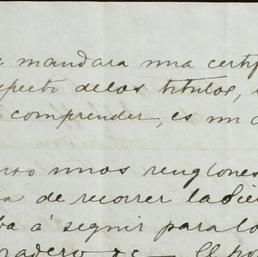 mandara una certif
specto delos titulos,
comprender, es un
unos renglones
de recorrer la Sie
ba á seguir para lo